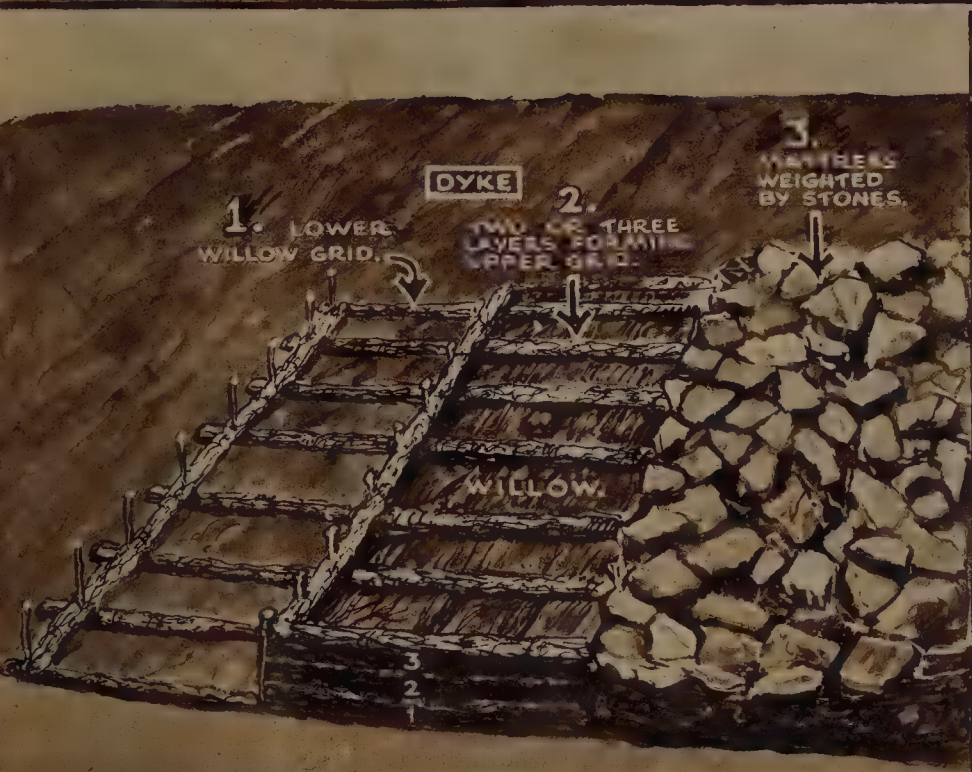 DYKE
1. LOWER
WILLOW GRID.
2.
TWO OR THREE
LAYERS FORMING
UPPER GRID.
3.
MATTRESS
WEIGHTED
BY STONES.
WILLOW.
3
2
1